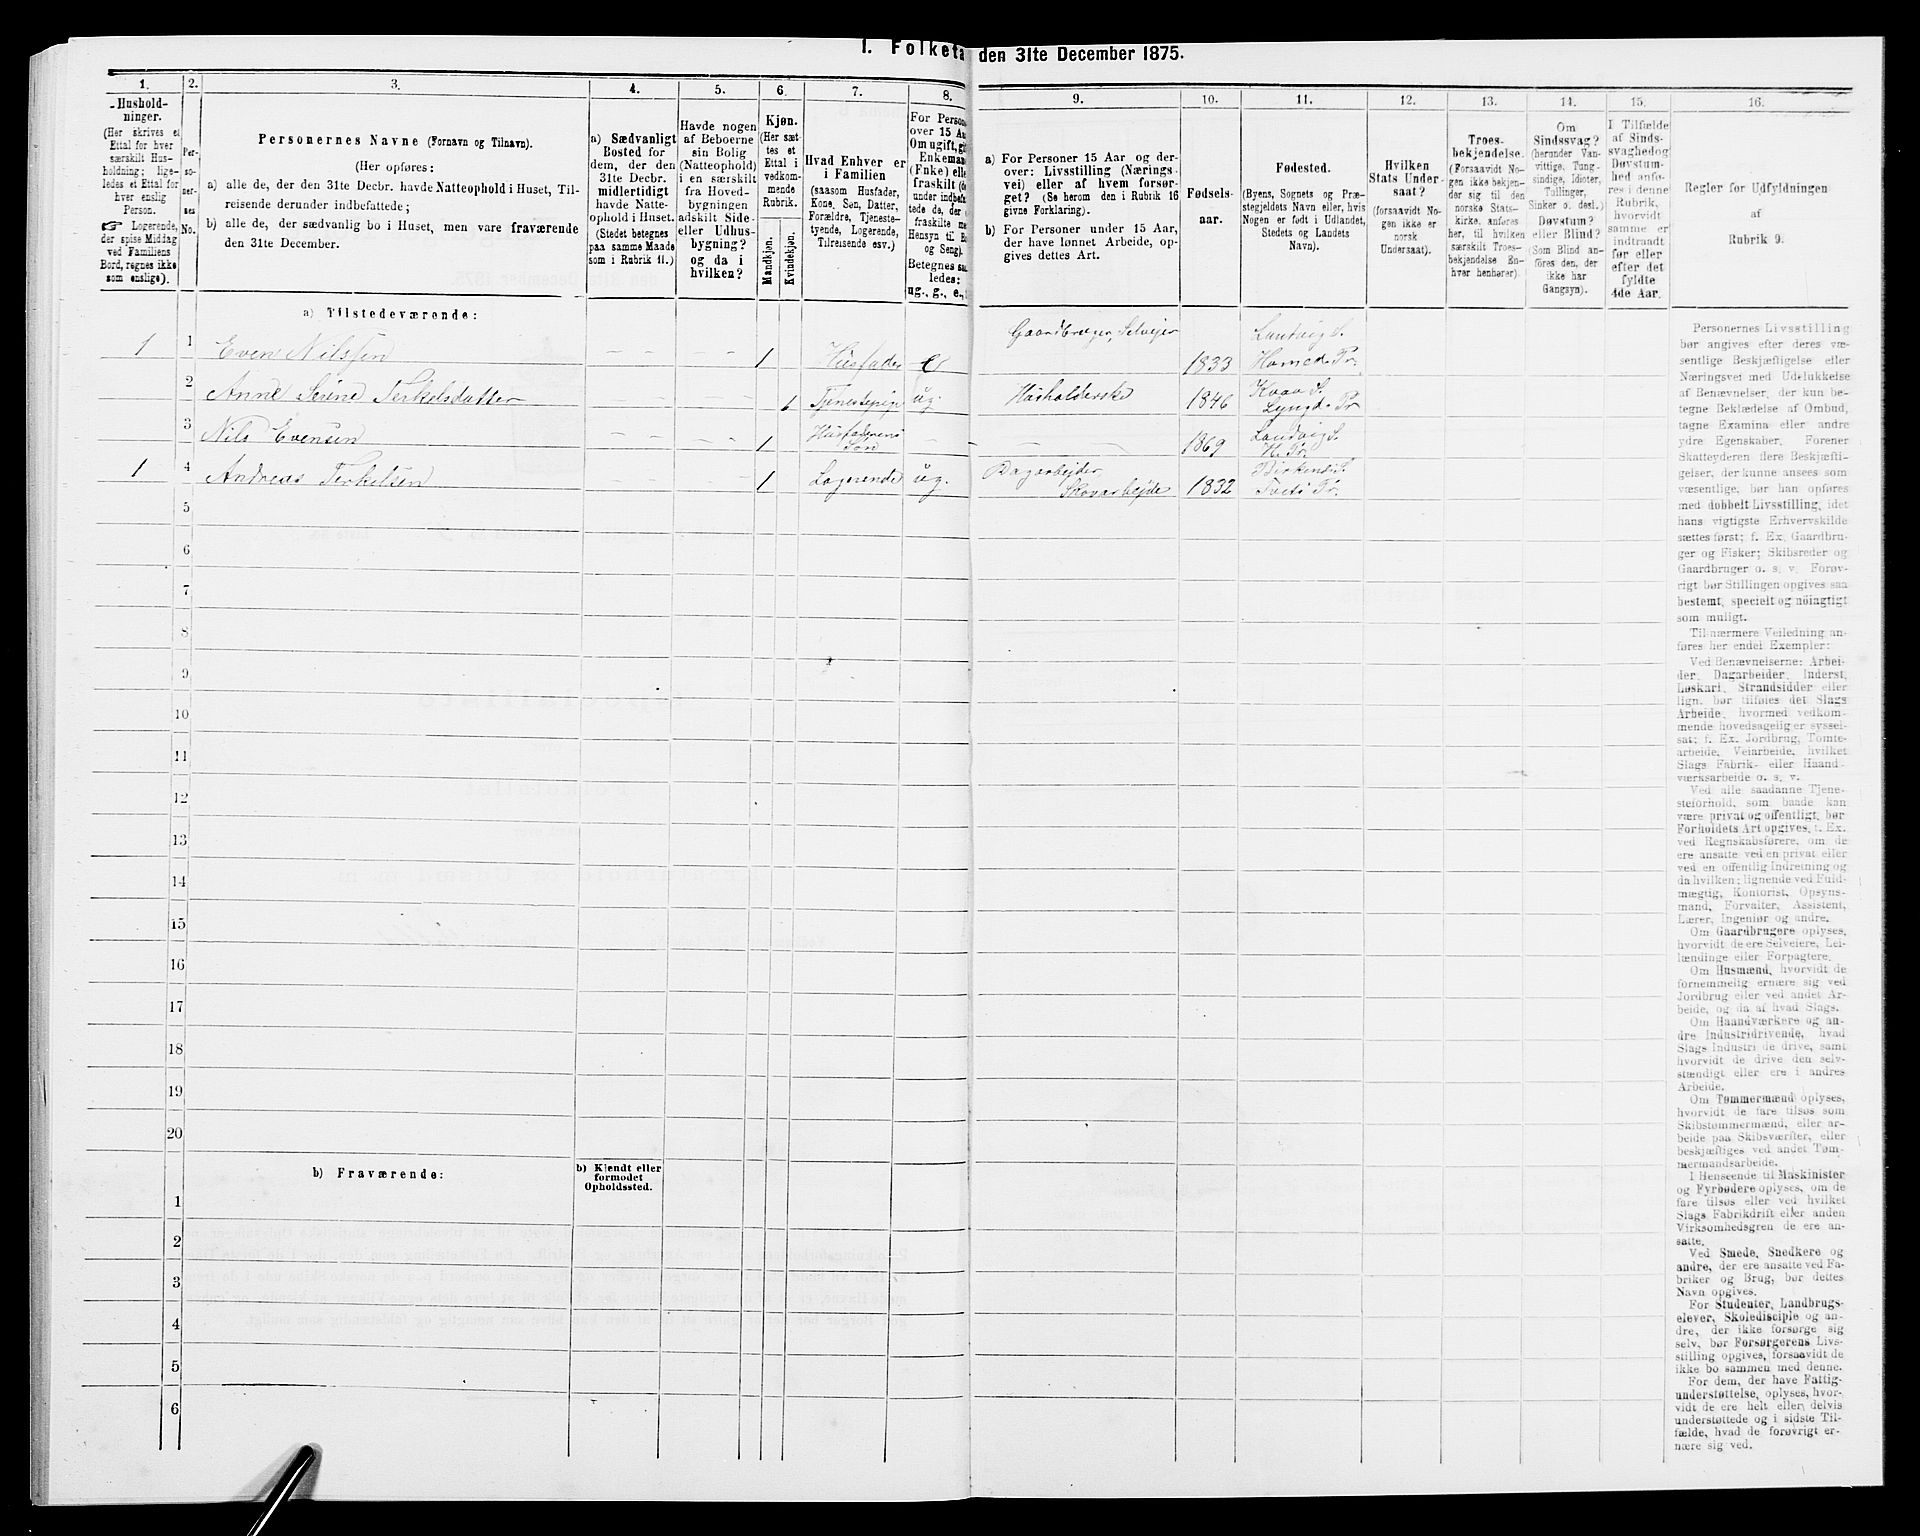 I. Folketa den 31te December 1875.
1.
Hushold-
ninger.
(Her skrives et
Ettal for hver
særskilt Hus-
holdning; lige-
ledes et Ettal for
hver enslig
Person.
Logerende,
der spise Middag
ved Familiens
Bord, regnes ikke
som enslige).
2.
Per-
so-
ner-
nes
No.
3.
Personernes Navne (Fornavn og Tilnavn).
(Her opføres:
a) alle de, der den 31te Decbr. havde Natteophold i Huset, Til-
reisende derunder indbefattede;
b) alle de, der sædvanlig bo i Huset, men vare fraværende
den 31te December.
4.
a) Sædvanligt
Bosted for
dem, der den
31te Decbr.
midlertidigt
havde Natte-
ophold i Huset.
(Stedet betegnes
paa samme Maade
som i Rubrik 11.)
5.
Havde nogen
af Beboerne
sin Bolig
(Natteophold)
i en særskilt
fra Hoved-
bygningen
adskilt Side-
eller Udhus-
bygning?
og da i
hvilken?
6.
Kjøn.
(Her sæt-
tes et
Ettal i
vedkom-
mende
Rubrik.
Mandkjøn.
Kvindekjøn.
7.
Hvad Enhver er
i Familien
(saasom Husfader,
Kone, Søn, Datter,
Forældre, Tjeneste-
tyende, Logerende,
Tilreisende osv.)
8.
For Persone
over 15 Aa
Om ugift, gi
Enkemand
(Enke) elle
fraskilt (de
under indbe
tede de, der
fraskilte me
Hensyn til B
og Seng).
Betegnes saa
ledes:
ug., g., e.,
9.
a) For Personer 15 Aar og der-
over: Livsstilling (Nærings
vei) eller af hvem forsør-
get? (Se herom den i Rubrik 16
givne Forklaring).
b) For Personer under 15 Aar,
der have lønnet Arbeide, op-
gives dettes Art.
10.
Fødsels-
aar.
11.
Fødested.
(Byens, Sognets og Præ-
stegjeldets Navn eller, hvis
Nogen er født i Udlandet,
Stedets og Landets
Navn).
12.
Hvilken
Stats Under-
saat?
(forsaavidt No-
gen ikke er
norsk
Undersaat).
13.
Troes-
bekjendelse.
(Forsaavidt No-
gen ikke bekjen-
der sig til den
norske Stats-
kirke, anføres
her, til hvilken
særskilt Troes-
bekjendelse En-
hver henhører).
14.
Om
Sindssvag?
(herunder Van-
vittige, Tung-
sindige, Idioter,
Tullinger,
Sinker o. desl.)
Døvstum?
eller Blind?
(Som Blind an-
føres den, der
ikke har
Gangsyn).
15.
I Tilfælde
af Sinds-
svaghedog
Døvstum-
hed anfø-
res i denne
Rubrik,
hvorvidt
samme er
indtraadt
før eller
efter det
fyldte
4de Aar.
16.
Regler for Udfyldningen
af
Rubrik 9.
a) Tilstedeværende:
1 1 Even Nilssen — — — 1 Husfader e Gaardbruger, Selveier 1833 Landvig S. Homed. Pr.
2 Anne Serine Terkelsdatter — — — Tjenestepige ug. Husholderske 1846 S. Lyngd. Pr
3 Nils Evensen — — — 1 Husfaderens Søn — — — — 1869 Landvig S. H. Pr.
1 4 Andreas Terkelsen — — — 1 Logerende ug. Dagarbejder Skovarbejde 1832 Birkenes S. Tveits Pr.
5
6
7
8
9
10
11
12
13
14
15
16
17
18
19
20
b) Fraværende:
b) Kjendt eller
formodet
Opholdssted.
1
2
3
4
5
6
Personernes Livsstilling
bør angives efter deres væ-
sentlige Beskjæftigelse eller
Næringsvei med Udelukkelse
af Benævnelser, der kun be-
tegne Beklædelse af Ombud,
tagne Examina eller andre
ydre Egenskaber. Forener
Skatteyderen flere Beskjæfti-
gelser, der kunne ansees som
væsentlige, bør han opføres
med dobbelt Livsstilling, idet
hans vigtigste Erhvervskilde
sættes først; f. Ex. Gaardbru-
ger og Fisker; Skibsreder og
Gaardbruger o. s. v. Forøv-
rigt bør Stillingen opgives saa
bestemt, specielt og nøiagtigt
som muligt.
Til nærmere Veiledning an-
føres her endel Exempler:
Ved Benævnelserne: Arbei-
der, Dagarbeider, Inderst,
Løskarl, Strandsidder eller
lign. bør tilføies det Slags
Arbeide, hvormed vedkom-
mende hovedsagelig er syssel-
sat; f. Ex. Jordbrug, Tomte-
arbeide, Veiarbeide, hvilket
Slags Fabrik- eller Haand-
værksarbeide o. s. v.
Ved alle saadanne Tjene-
steforhold, som baade kan
være privat og offentligt, bør
Forholdets Art opgives, f. Ex.
ved Regnskabsførere, om de
ere ansatte ved en privat eller
ved en offentlig Indretning og
da hvilken; lignende ved Fuld-
mægtig, Kontorist, Opsyns-
mand, Forvalter, Assistent,
Lærer, Ingeniør og andre.
Om Gaardbrugere oplyses,
hvorvidt de ere Selveiere, Lei-
lændinge eller Forpagtere.
Om Husmænd, hvorvidt de
fornemmelig ernære sig ved
Jordbrug eller ved andet Ar-
beide, og da af hvad Slags.
Om Haandværkere og an-
dre Industridrivende, hvad
Slags Industri de drive, samt
hvorvidt de drive den selv-
stændigt eller ere i andres
Arbeide.
Om Tømmermænd oplyses,
hvorvidt de fare tilsøs som
Skibstømmermænd, eller ar-
beide paa Skibsværfter, eller
beskjæftiges ved andet Tøm-
mermandsarbeide.
I Henseende til Maskinister
og Fyrbødere oplyses, om de
fare tilsøs eller ved hvilket
Slags Fabrikdrift eller anden
Virksomhedsgren de ere an-
satte.
Ved Smede, Snedkere og
andre, der ere ansatte ved Fa-
briker og Brug, bør dettes
Navn opgives.
For Studenter, Landbrugs-
elever, Skoledisciple og an-
dre, der ikke forsørge sig
selv, bør Forsørgerens Livs-
stilling opgives, forsaavidt de
ikke bo sammen med denne.
For dem, der have Fattig-
understøttelse, oplyses, hvor-
vidt de ere helt eller delvis
understøttede og i sidste Til-
fælde, hvad de forøvrigt er-
nære sig ved.